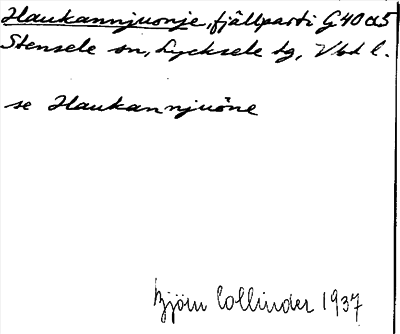 Haukannjuonje, fjällparti G40 a5
Stensele sn, Lycksele lg, Vbd l.
se Haukannjuöne
Björn Collinder 1937